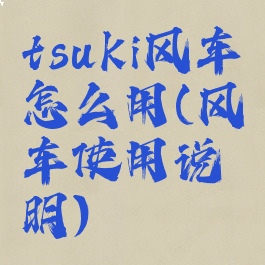 tsuki风车
怎么用(风
车使用说
明)